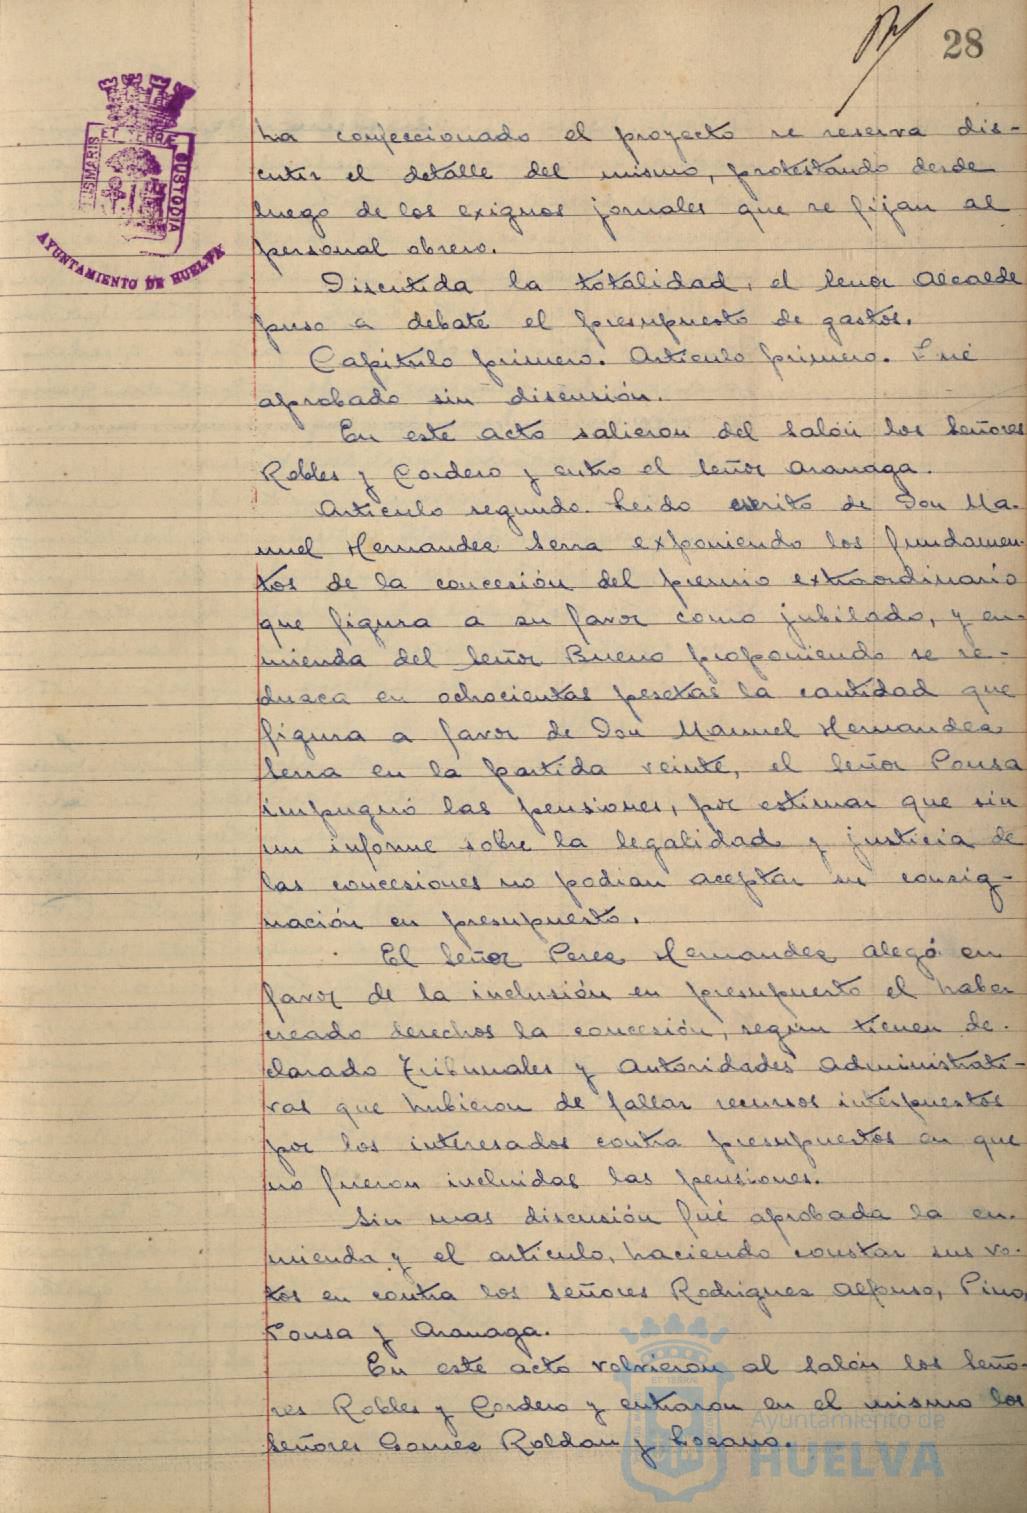 28
ET TERRA
CUSTODIA
AYUNTAMIENTO DE HUELVA
ha confeccionado el proyecto se reserva dis-
cutir el detalle del mismo, protestando desde
luego de los exiguos jornales que se fijan al
personal obrero.
Discutida la totalidad, el Señor Alcalde
puso a debate el presupuesto de gastos.
Capitulo primero. Articulo primero. Fué
aprobado sin discusión.
En este acto salieron del Salón los Señores
Robles y Cordero y entro el Señor Aranaga.
Articulo segundo. Leido escrito de Don Ma-
nuel Hernandez Serra exponiendo los fundamen-
tos de la concesión del premio extraordinario
que figura a su favor como jubilado, y en-
mienda del Señor Bueno proponiendo se re-
duzca en ochocientas pesetas la cantidad que
figura a favor de Don Manuel Hernandez
Serra en la partida veinte, el Señor Ponsa
impugnó las pensiones, por estimar que sin
un informe sobre la legalidad y justicia de
las concesiones no podian aceptar su consig-
nación en presupuesto.
El Señor Perez Hernandez alegó en
favor de la inclusión en presupuesto el haber
creado derechos la concesión, segun tienen de-
clarado Tribunales y Autoridades Administrati-
vas que hubieron de fallar recursos interpuestos
por los interesados contra presupuestos en que
no fueron incluidas las pensiones.
Sin mas discusión fué aprobada la en-
mienda y el articulo, haciendo constar sus vo-
tos en contra los Señores Rodriguez Alfonso, Pino,
Ponsa y Aranaga.
En este acto volvieron al Salón los Seño-
res Robles y Cordero y entraron en el mismo los
Señores Gomez Roldan y Lozano.
Ayuntamiento de
HUELVA